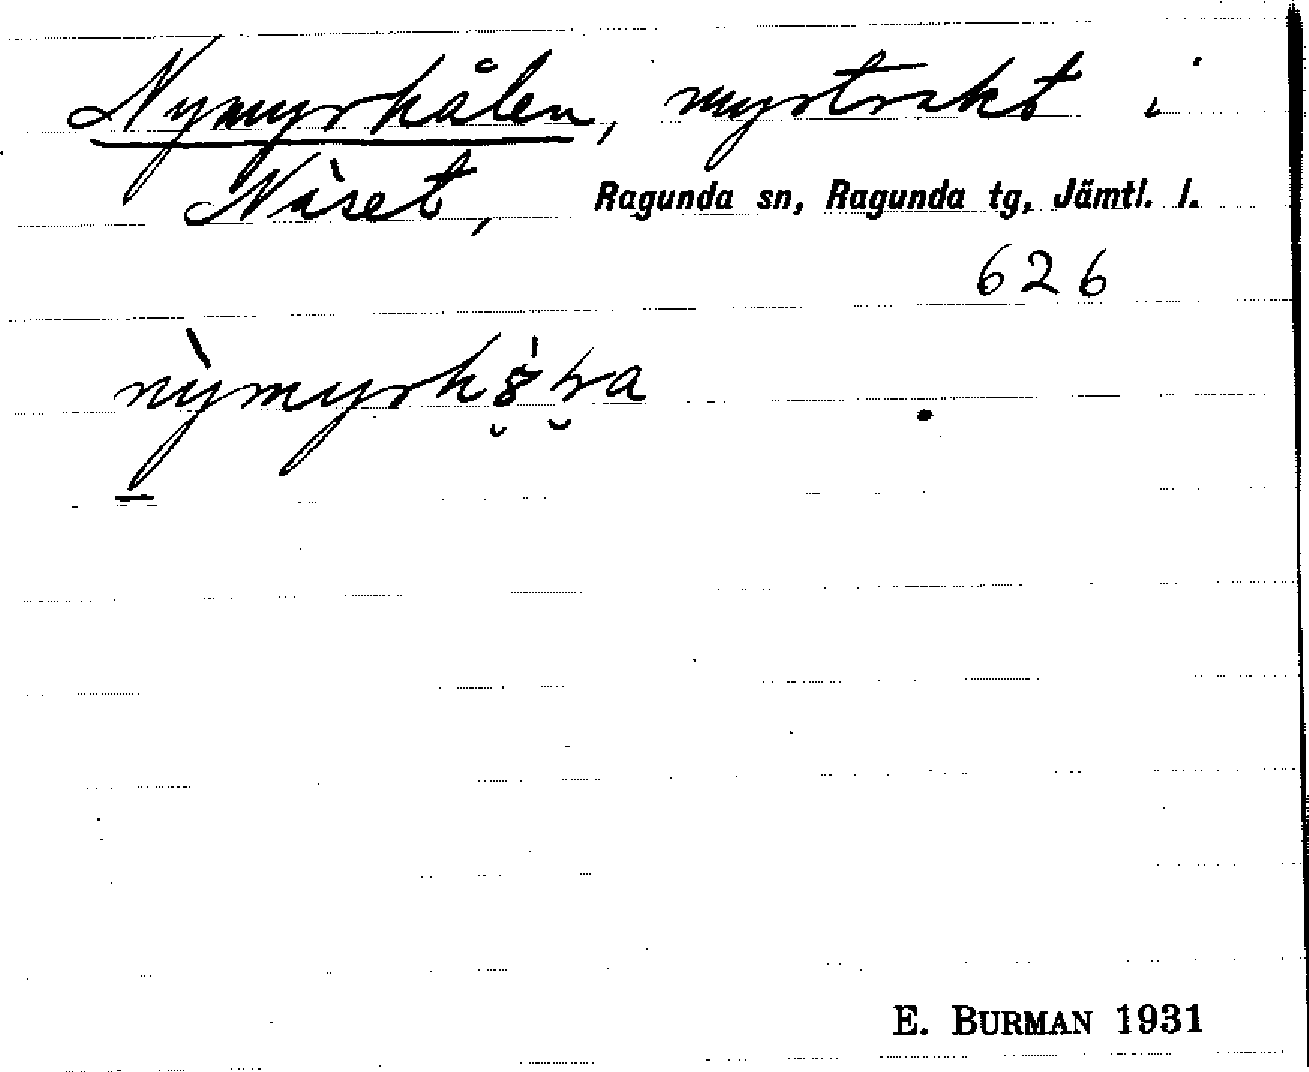 Nymyrkålen, myrtrakt i
Näset, Ragunda sn, Ragunda tg, Jämtl. l.
626
E. BURMAN 1931